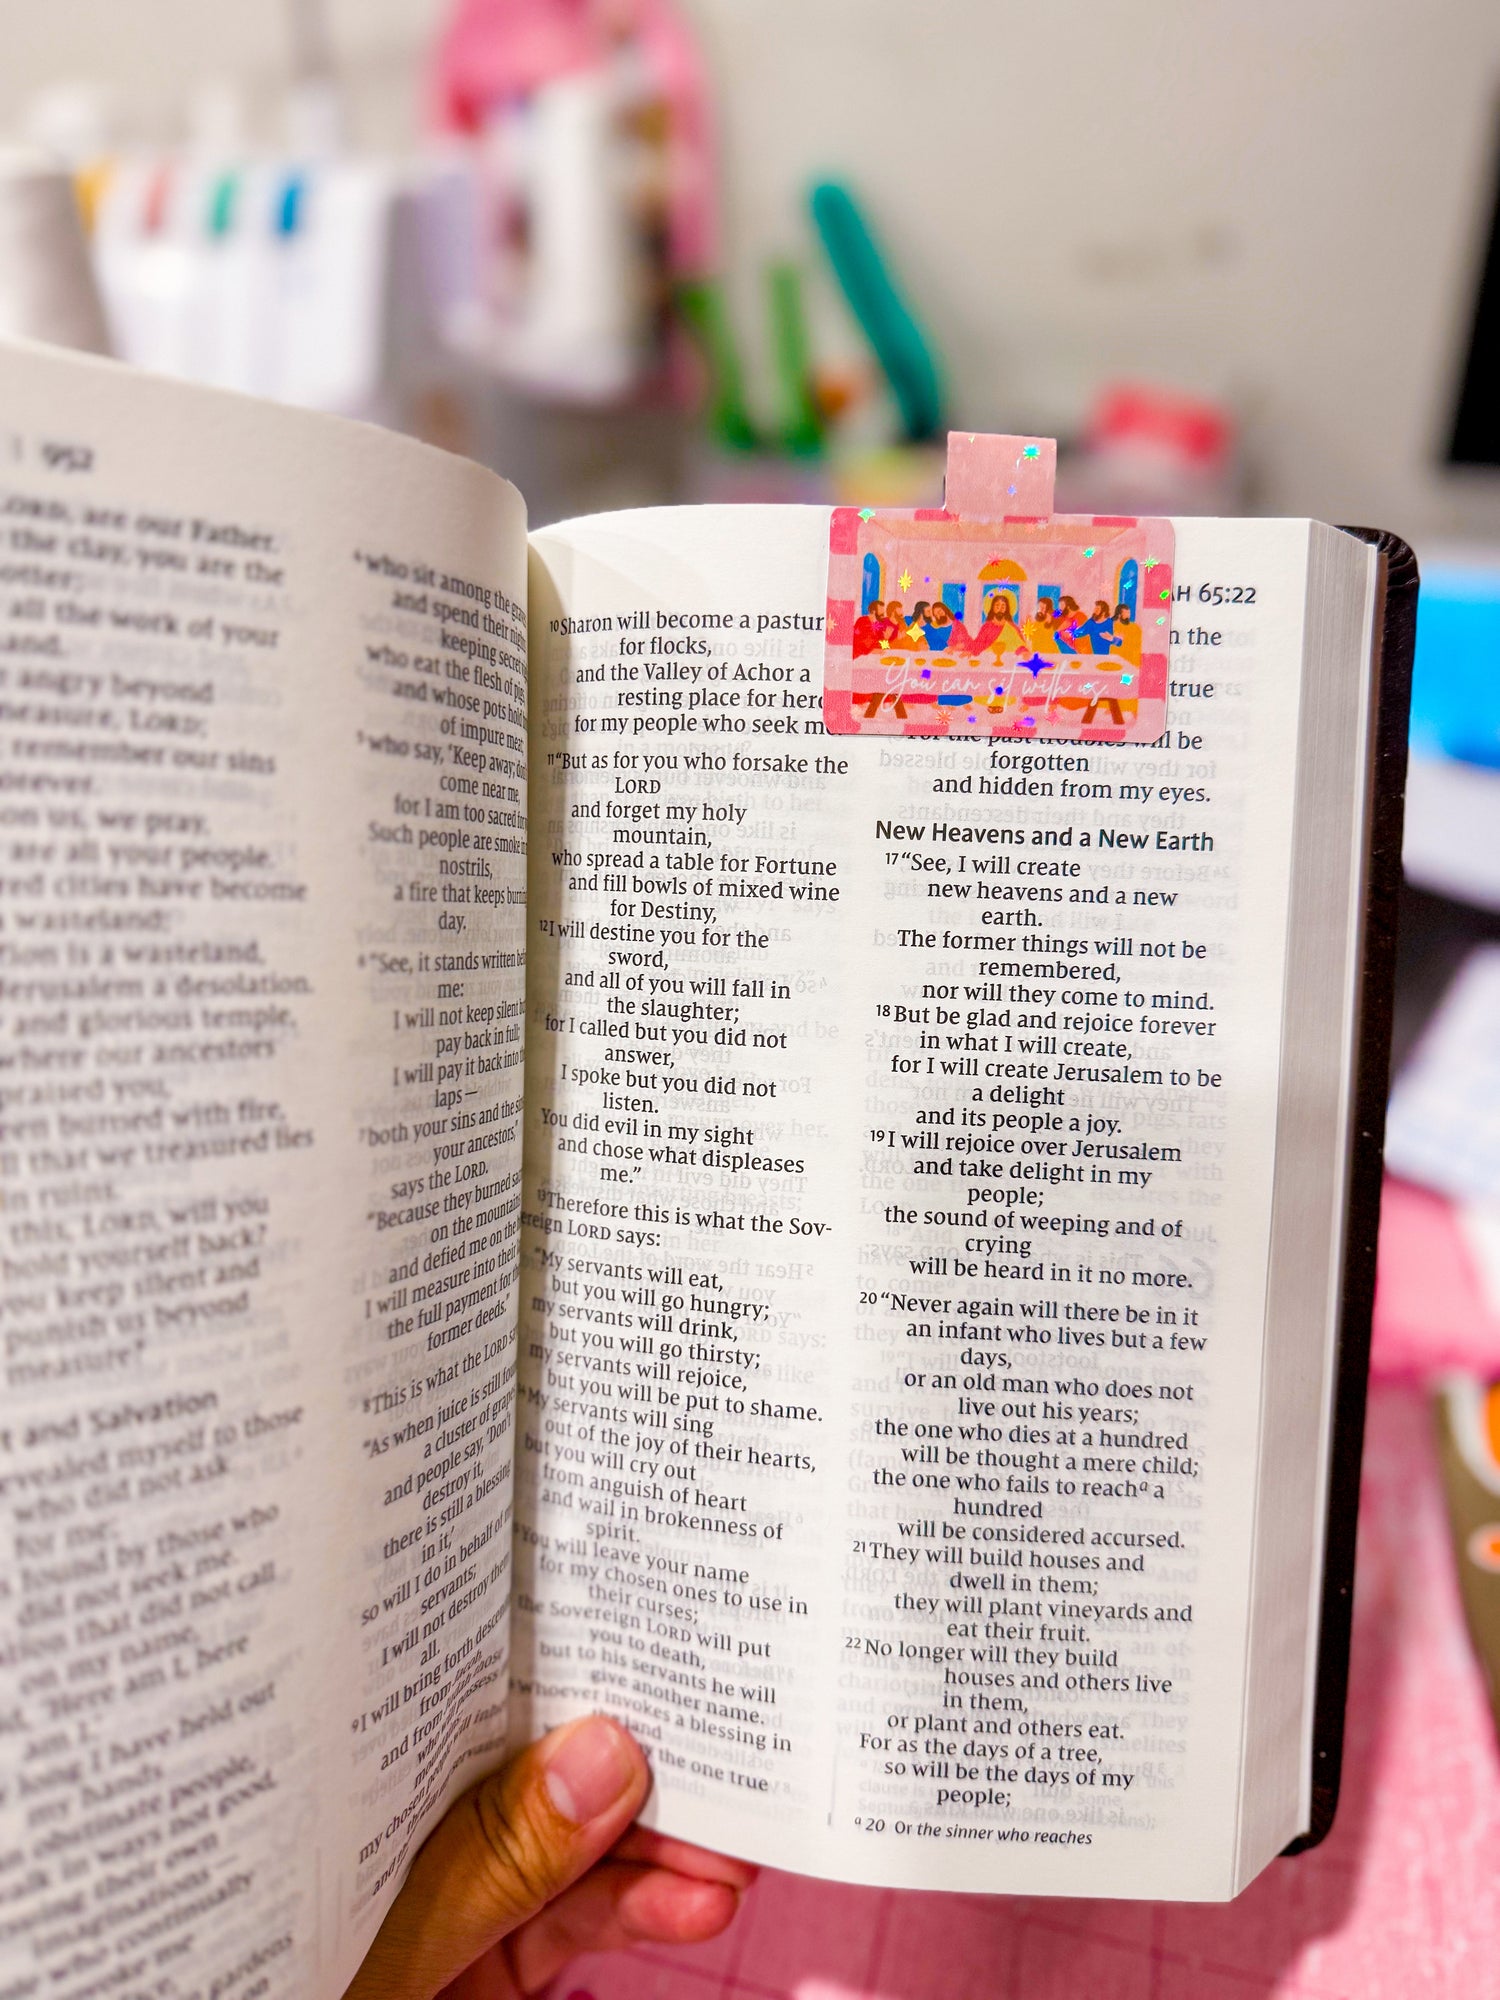 952
LORD, are our Father.
the clay, you are the
all the work of your
angry beyond
measure, LORD;
remember our sins
on us, we pray,
are all your people.
cities have become
a wasteland;
is a wasteland,
Jerusalem a desolation.
and glorious temple,
where our ancestors
praised you,
burned with fire,
that we treasured lies
in ruins.
this, LORD, will you
hold yourself back?
you keep silent and
punish us beyond
measure?"
and Salvation
revealed myself to those
who did not ask
for me;
found by those who
did not seek me.
that did not call
on my name,
'Here am I, here
am I.'
long I have held out
my hands
obstinate people,
walk in ways not good,
their own
imaginations —
who continually
provoke me
gardens
on
4 who sit among the
and spend their
keeping secret
who eat the flesh of pigs,
and whose pots hold
of impure meat;
5 who say, 'Keep away; don't
come near me,
for I am too sacred for
Such people are smoke in
nostrils,
a fire that keeps burning
day.
6 "See, it stands written
me:
I will not keep silent but
pay back in full;
I will pay it back into
laps —
7 both your sins and the
your ancestors,"
says the LORD.
"Because they burned
on the mountains
and defied me on the
I will measure into their
the full payment for
former deeds."
8 This is what the LORD
"As when juice is still
a cluster of grapes
and people say, 'Don't
destroy it,
there is still a blessing
in it,'
so will I do in behalf of
servants;
I will not destroy them
all.
9 I will bring forth
from Jacob,
and from Judah those
my chosen
10 Sharon will become a
for flocks,
and the Valley of Achor a
resting place for
for my people who seek
11 "But as for you who forsake the
LORD
and forget my holy
mountain,
who spread a table for Fortune
and fill bowls of mixed wine
for Destiny,
12 I will destine you for the
sword,
and all of you will fall in
the slaughter;
for I called but you did not
answer,
I spoke but you did not
listen.
You did evil in my sight
and chose what displeases
me."
13 Therefore this is what the Sov-
ereign LORD says:
"My servants will eat,
but you will go hungry;
my servants will drink,
but you will go thirsty;
my servants will rejoice,
but you will be put to shame.
14 My servants will sing
out of the joy of their hearts,
but you will cry out
from anguish of heart
and wail in brokenness of
spirit.
You will leave your name
for my chosen ones to use in
their curses;
the Sovereign LORD will put
you to death,
but to his servants he will
give another name.
Whoever invokes a blessing in
the land
the one true
You can sit with us
AH 65:22
in the
true
For the past troubles will be
forgotten
and hidden from my eyes.
New Heavens and a New Earth
17 "See, I will create
new heavens and a new
earth.
The former things will not be
remembered,
nor will they come to mind.
18 But be glad and rejoice forever
in what I will create,
for I will create Jerusalem to be
a delight
and its people a joy.
19 I will rejoice over Jerusalem
and take delight in my
people;
the sound of weeping and of
crying
will be heard in it no more.
20 "Never again will there be in it
an infant who lives but a few
days,
or an old man who does not
live out his years;
the one who dies at a hundred
will be thought a mere child;
the one who fails to reach a a
hundred
will be considered accursed.
21 They will build houses and
dwell in them;
they will plant vineyards and
eat their fruit.
22 No longer will they build
houses and others live
in them,
or plant and others eat.
For as the days of a tree,
so will be the days of my
people;
a 20 Or the sinner who reaches